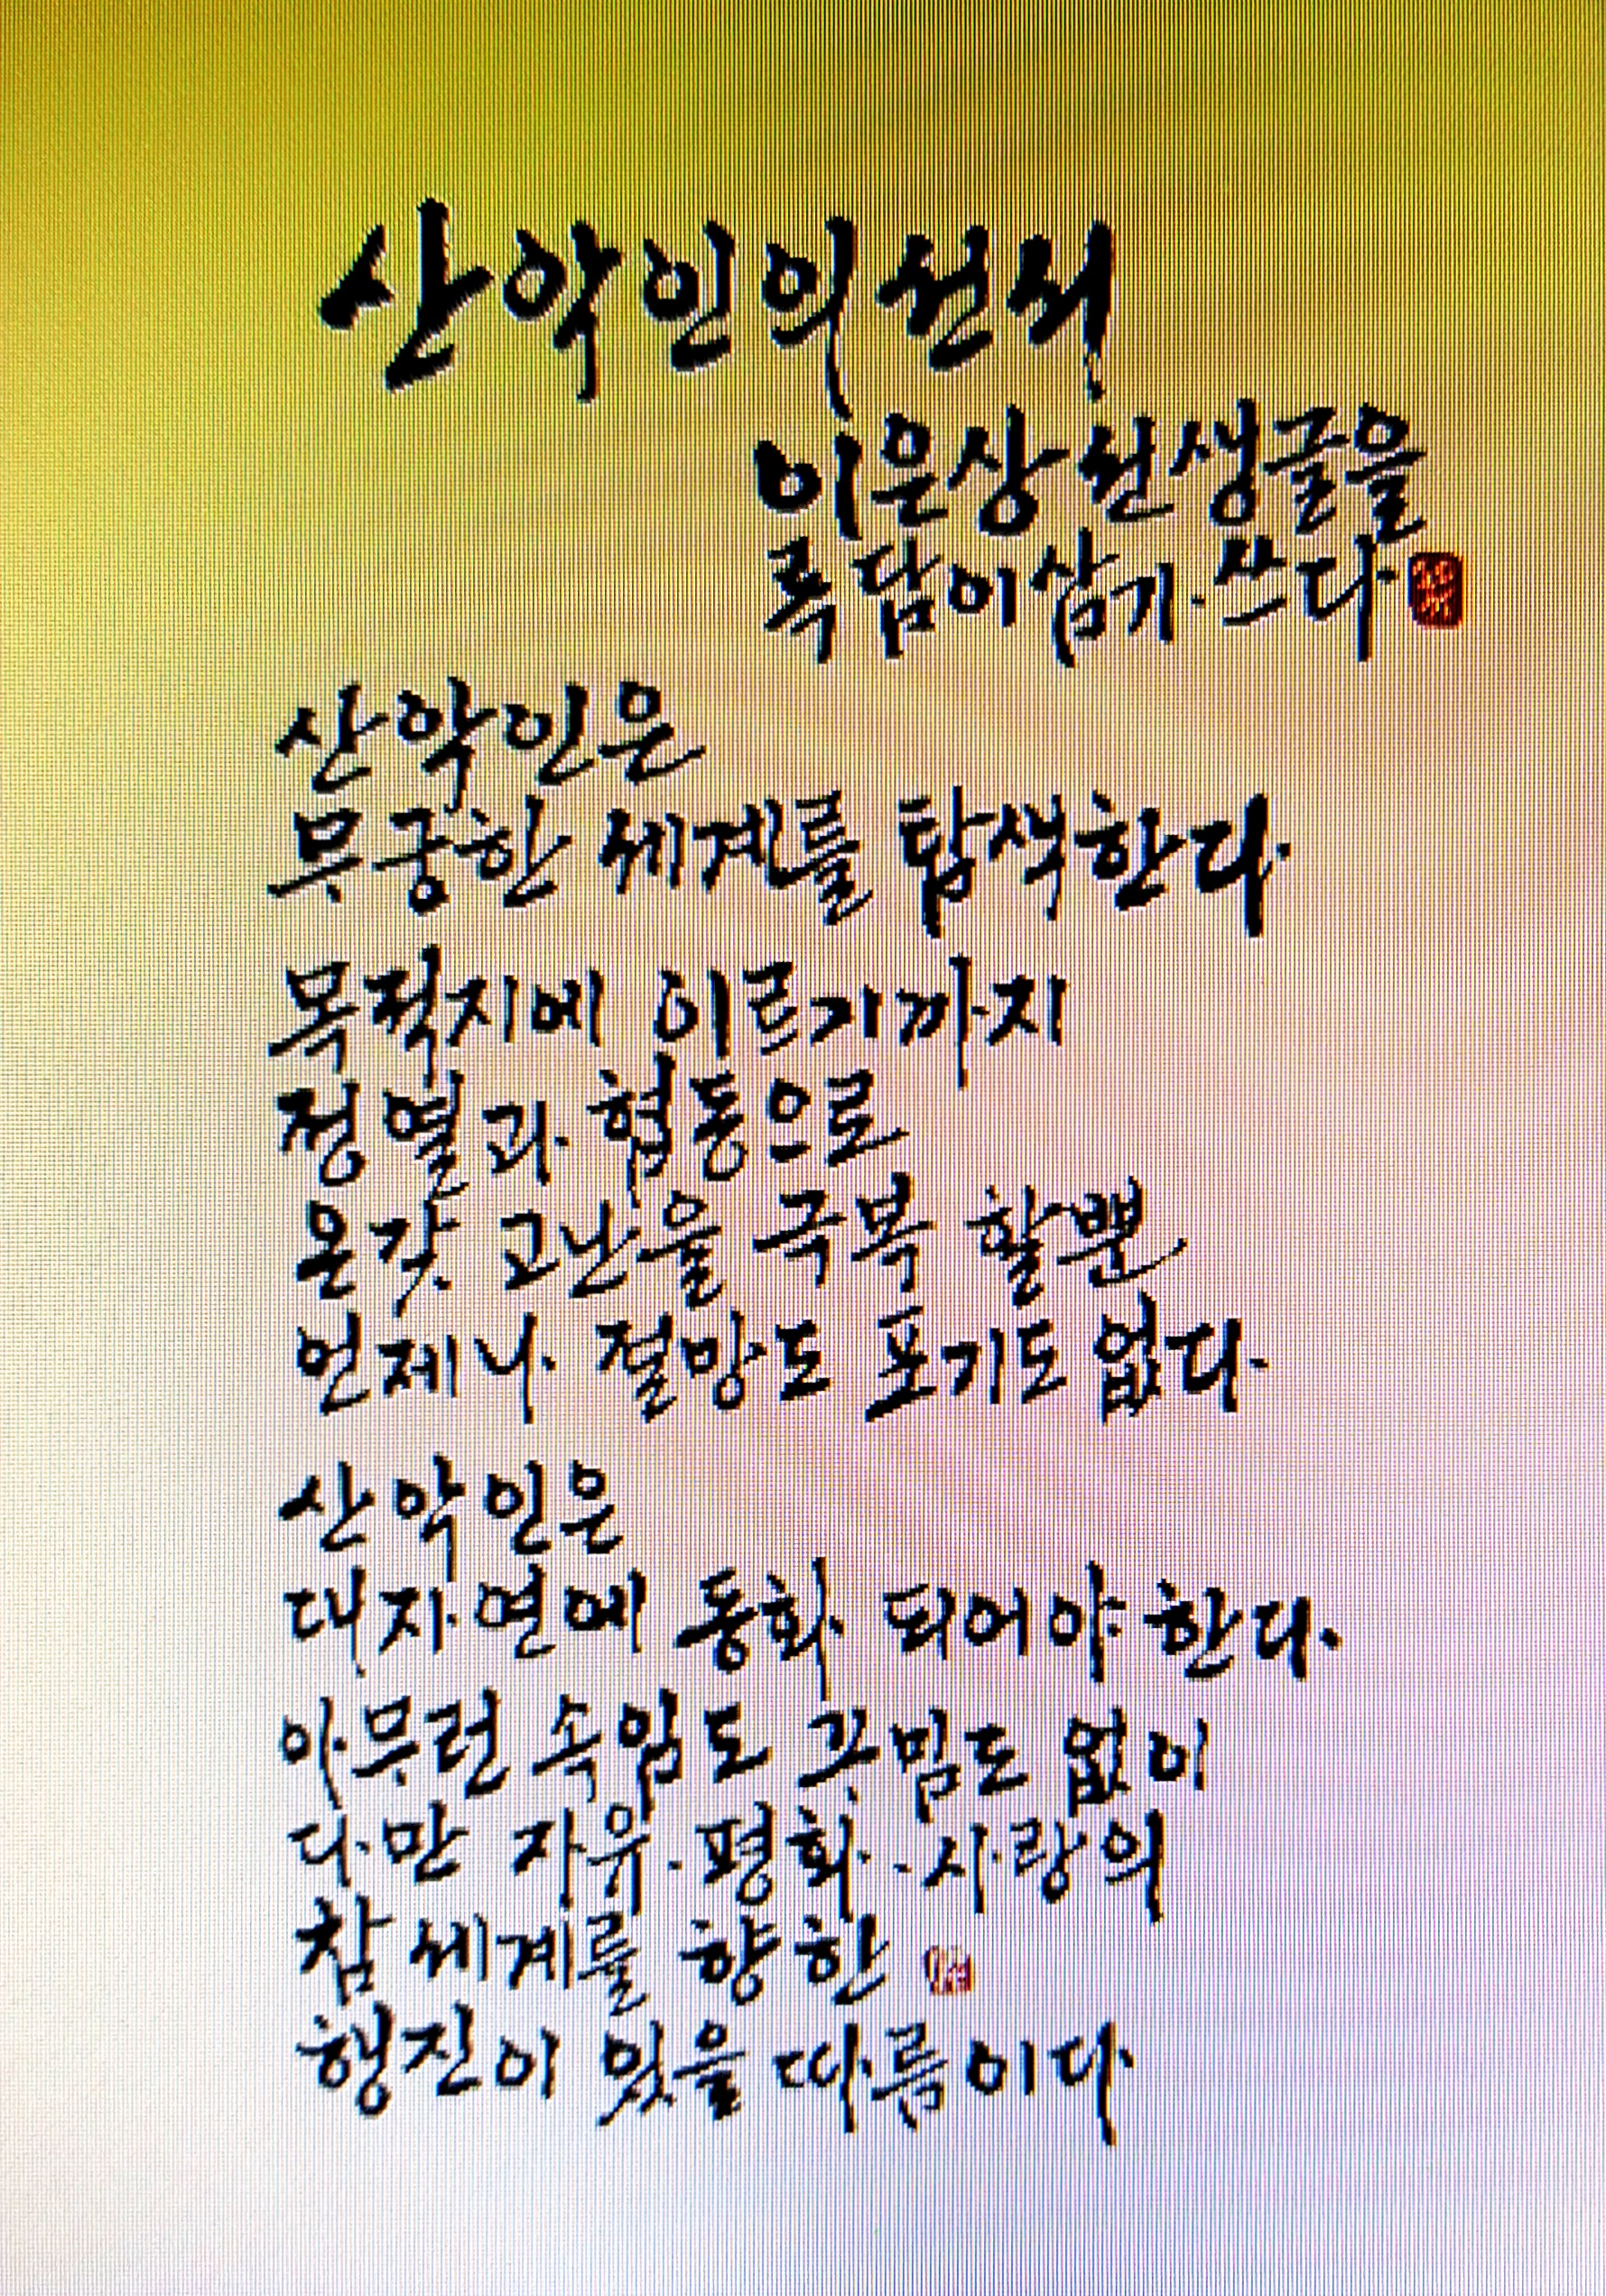 산악인의 선서
이은상 선생글을
쓰다
산악인은
무궁한 세계를 탐색한다
목적지에 이르기까지
정열과 협동으로
온갖 고난을 극복 할뿐
언제나 절망도 포기도 없다
산악인은
대자연에 동화 되어야 한다
아무런 속임도 꾸밈도 없이
다만 자유·평화·사랑의
참 세계를 향한
행진이 있을 따름이다